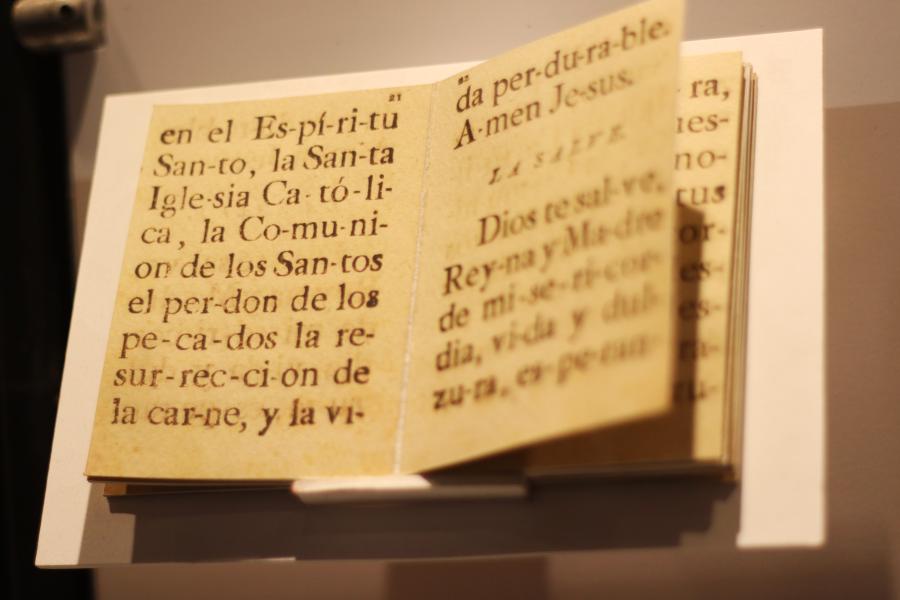 21
en el Es-pí-ri-tu
San-to, la San-ta
Igle-sia Ca-tó-li-
ca, la Co-mu-ni-
on de los San-tos
el per-don de los
pe-ca-dos la re-
sur-rec-ci-on de
la car-ne, y la vi-
da per-du-ra-ble.
A-men Je-sus.
LA SALVE.
Dios te sal-ve,
Rey-na y Ma-dre
de mi-se-ri-cor-
dia, vi-da y dul-
zu-ra, es-pe-ran-
ra,
es-
no-
tus
or-
es-
es-